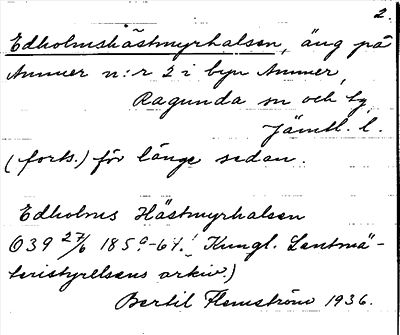 2.
Edholmshästmyrhalsen, äng på
Ammer n:r 2 i byn Ammer,
Ragunda sn och tg,
Jämtl. l.
(forts.) för länge sedan.
Edholms Hästmyrhalsen
O39 27/6 185º-64. Kungl. Lantmä-
teristyrelsens arkiv.)
Bertil Flemström 1936.